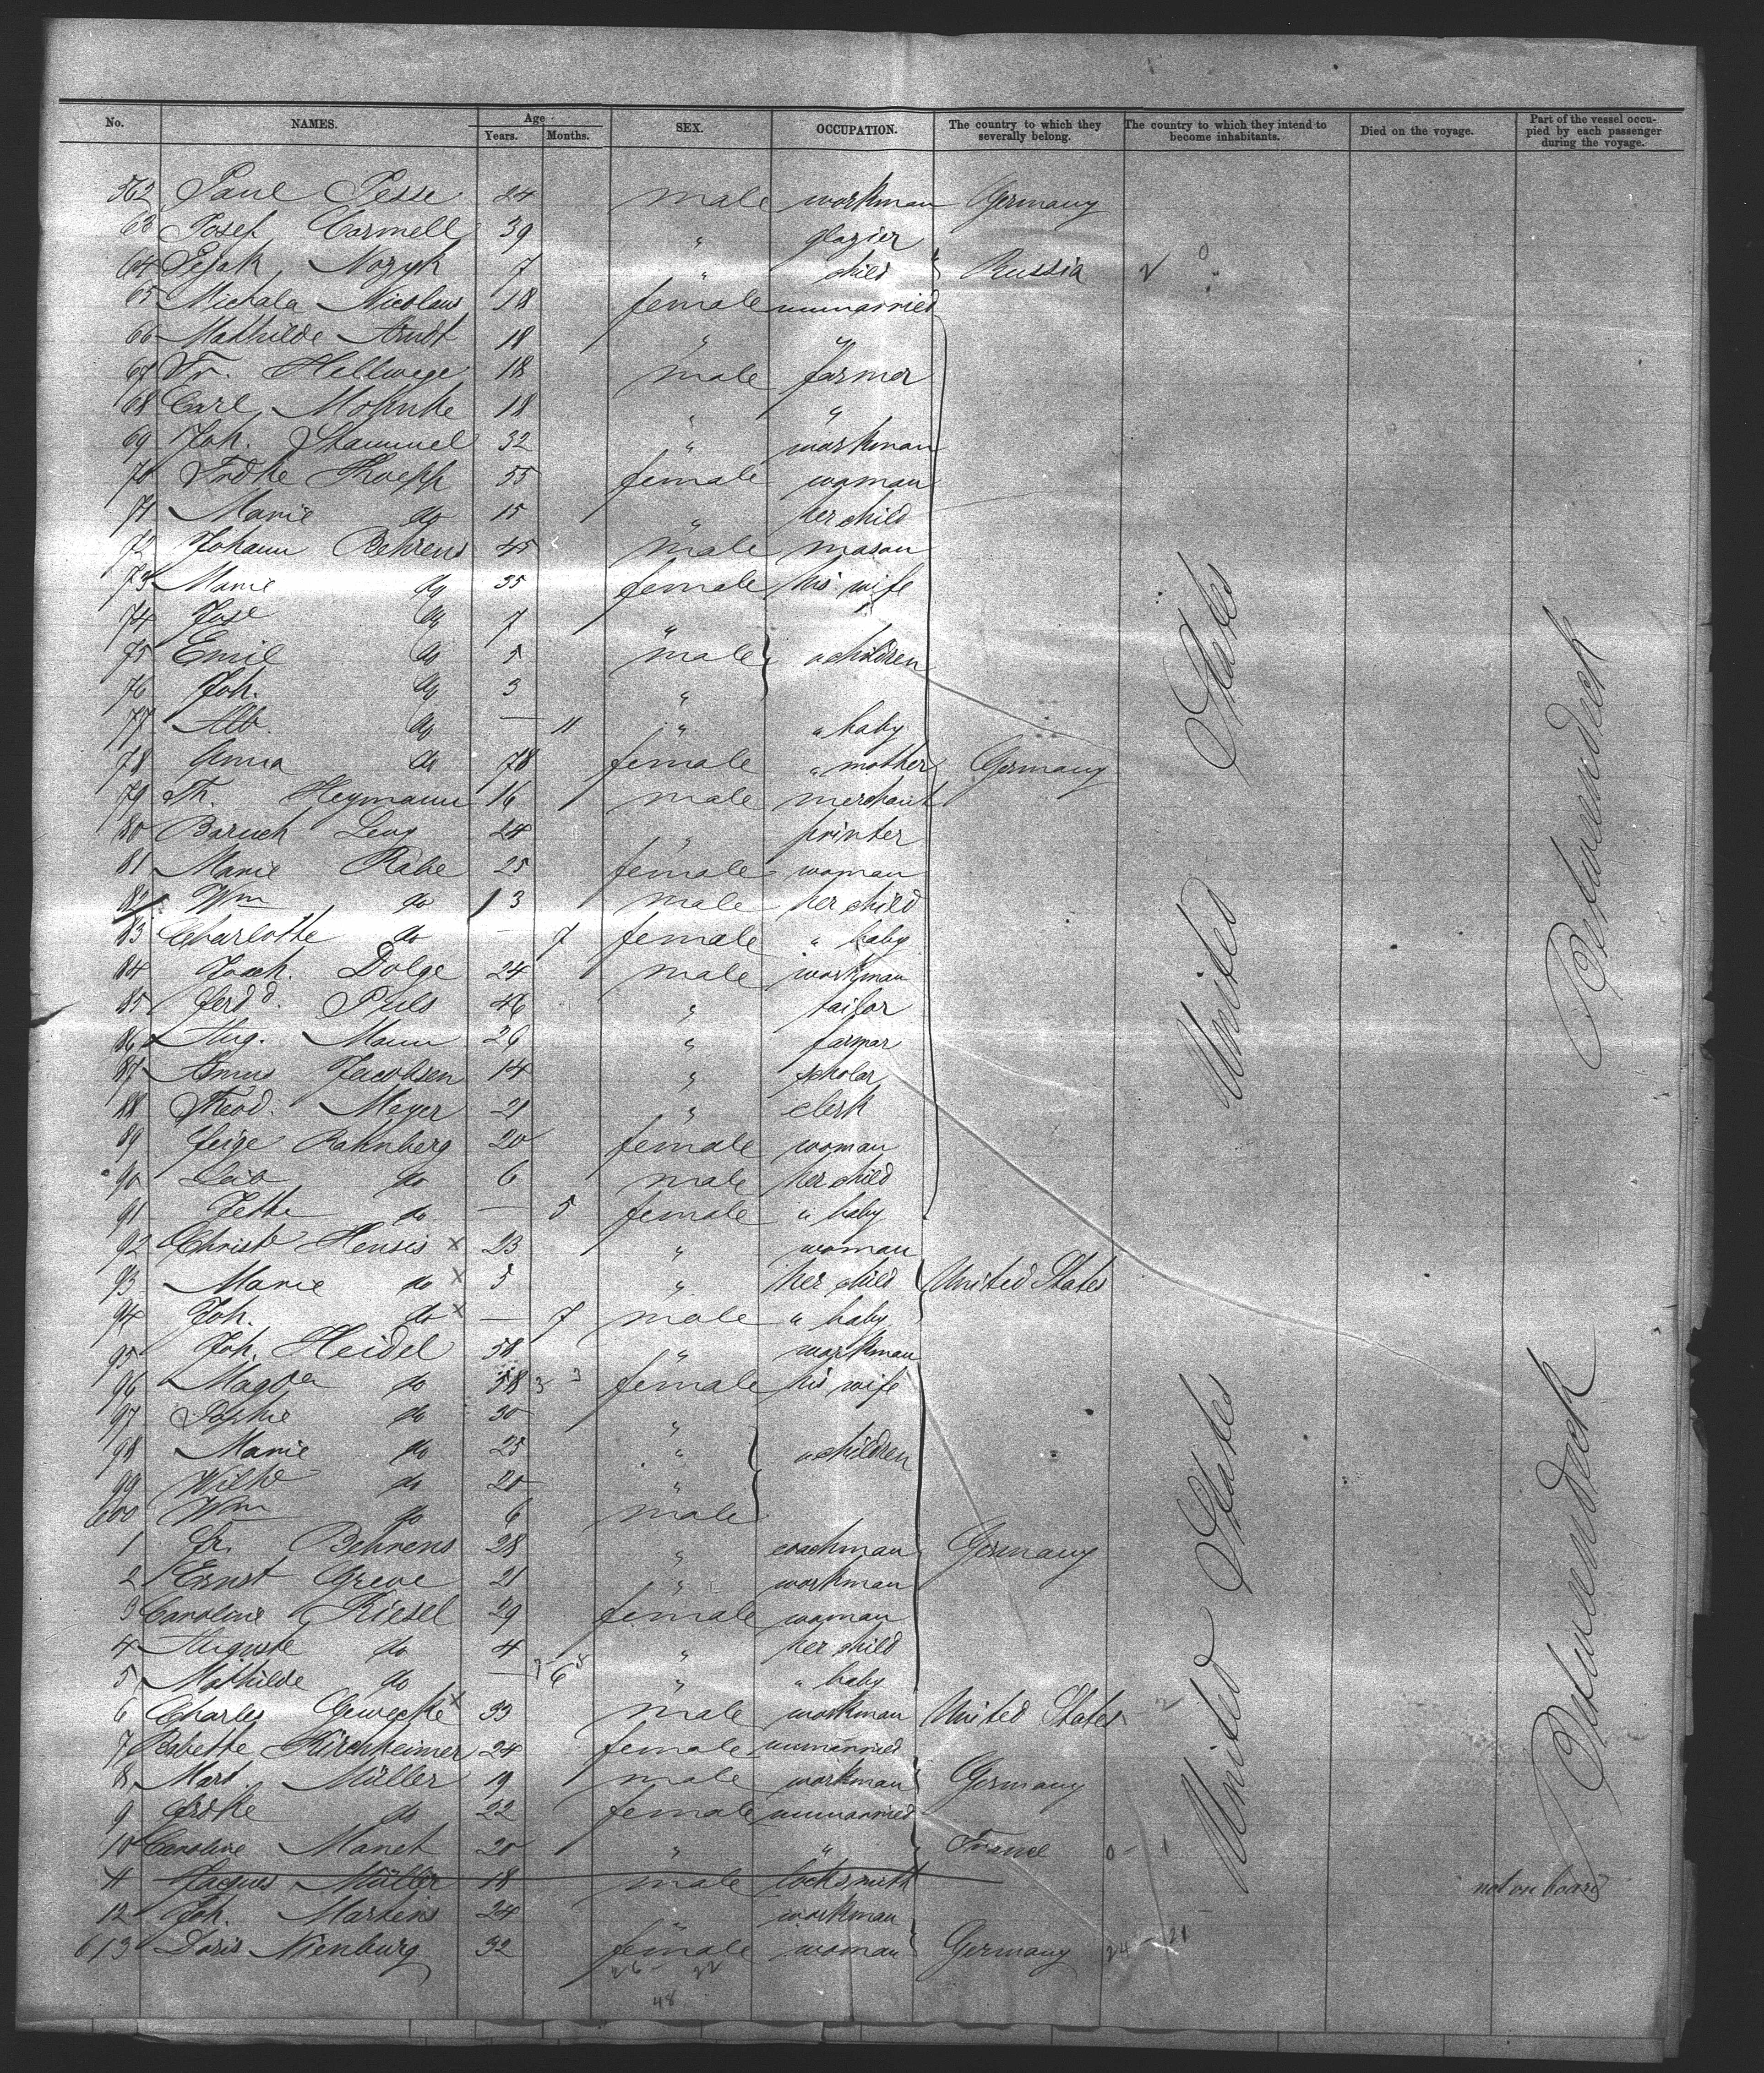 No. NAMES. Age Years. Months. SEX. OCCUPATION. The country to which they severally belong. The country to which they intend to become inhabitants. Died on the voyage. Part of the vessel occupied by each passenger during the voyage.
562 Paul Pesse 24 male workman Germany
63 Josef Carmell 39 " glazier
64 Nozyk 7 " child Russia
65 Michala Nicolaus 18 female unmarried
66 Mathilde Arndt 18 " "
67 Fr. Hellwege 18 male farmer
68 Carl Mohnke 18 " "
69 Joh. Stammel 32 " workman
70 Fredke Koepp 55 female woman
71 Marie do 15 " her child
72 Johann Behrens 45 male mason
73 Marie do 35 female his wife
74 do 7 "
75 Emil do 5 male " children
76 Joh. do 3 "
77 Alb. do — 11 " " baby
78 Anna do 78 female " mother Germany
79 Th. Heymann 16 male merchant
80 Baruch Levy 24 " printer
81 Marie Rabe 25 female woman
82 Wm do 3 male her child
83 Charlotte do — 7 female " baby
84 Joach. Dolge 24 male workman
85 Ferdd. Puls 46 " tailor
86 Aug. Mann 26 " farmar
87 Jacobsen 14 " scholar
88 Theod. Mayer 21 " clerk
89 Feige Rahnberg 20 female woman
90 do 6 male her child
91 Jette do — 5 female " baby
92 Christe Hensis x 23 " woman
93 Marie do x 5 " her child United States
94 Joh. do x — 7 male " baby
95 Joh. Heidel 58 " workman
96 Magda do 58 3 3 female his wife
97 Sophie do 30 "
98 Marie do 25 " " children
99 Wilhe do 20 "
600 Wm do 6 male
1 Fr. Behrens 28 " coachman Germany
2 Ernst Greve 21 " workman
3 Caroline Kiesel 29 female woman
4 Auguste do 4 " her child
5 Mathilde do — 6 " " baby
6 Charles Gewecke x 33 male workman United States
7 Babette Kirchheimer 24 female unmarried
8 Mart. Müller 19 male workman Germany
9 Frdke do 22 female unmarried
10 Caroline Manet 20 " " France 0 - 1
11 Jacques Müller 18 male locksmith not on board
12 Joh. Martens 24 " workman
613 Doris Nienburg 32 female woman Germany 24 - 21
26 - 22
48
United States
United States
Betweendeck
Betweendeck